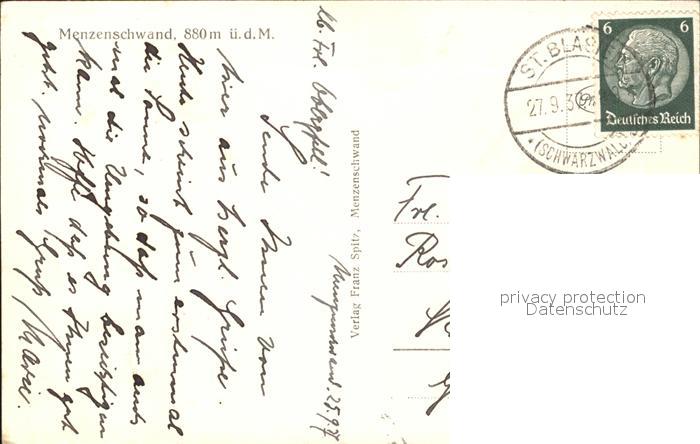 Menzenschwand, 880m ü.d.M.
Menzenschwand. 25.9.37
Lb. Frl. !
Sende Ihnen von
hier aus herzl. Grüße.
Heute scheint zum erstenmal
die Sonne, so daß man auch
mal die Umgebung besichtigen
kann. Hoffe daß es Ihnen gut
geht. nochmals Gruß
Verlag Franz Spitz, Menzenschwand
Frl.
ST. BLAS
27.9.3
(SCHWARZWALD)
6 6
Deutsches Reich
privacy protection
Datenschutz